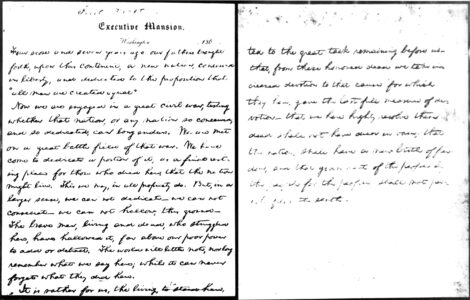 Executive Mansion,
Washington, 186
Four score and seven years ago our fathers brought
forth, upon this continent, a new nation, conceived
in liberty, and dedicated to the proposition that
"all men are created equal"
Now we are engaged in a great civil war, testing
whether that nation, or any nation so conceived,
and so dedicated, can long endure. We are met
on a great battle field of that war. We have
come to dedicate a portion of it, as a final rest-
ing place for those who died here, that the nation
might live. This we may, in all propriety do. But, in a
larger sense, we can not dedicate — we can not
consecrate — we can not hallow, this ground —
The brave men, living and dead, who struggled
here, have hallowed it, far above our poor power
to add or detract. The world will little note, nor long
remember what we say here; while it can never
forget what they did here.
It is rather for us, the living, to stand here,
ted to the great task remaining before us —
that, from these honored dead we take in-
creased devotion to that cause for which
they here, gave the last full measure of de-
votion — that we here highly resolve these
dead shall not have died in vain; that
the nation, shall have a new birth of free-
dom, and that government of the people by
the people for the people, shall not per-
ish from the earth.